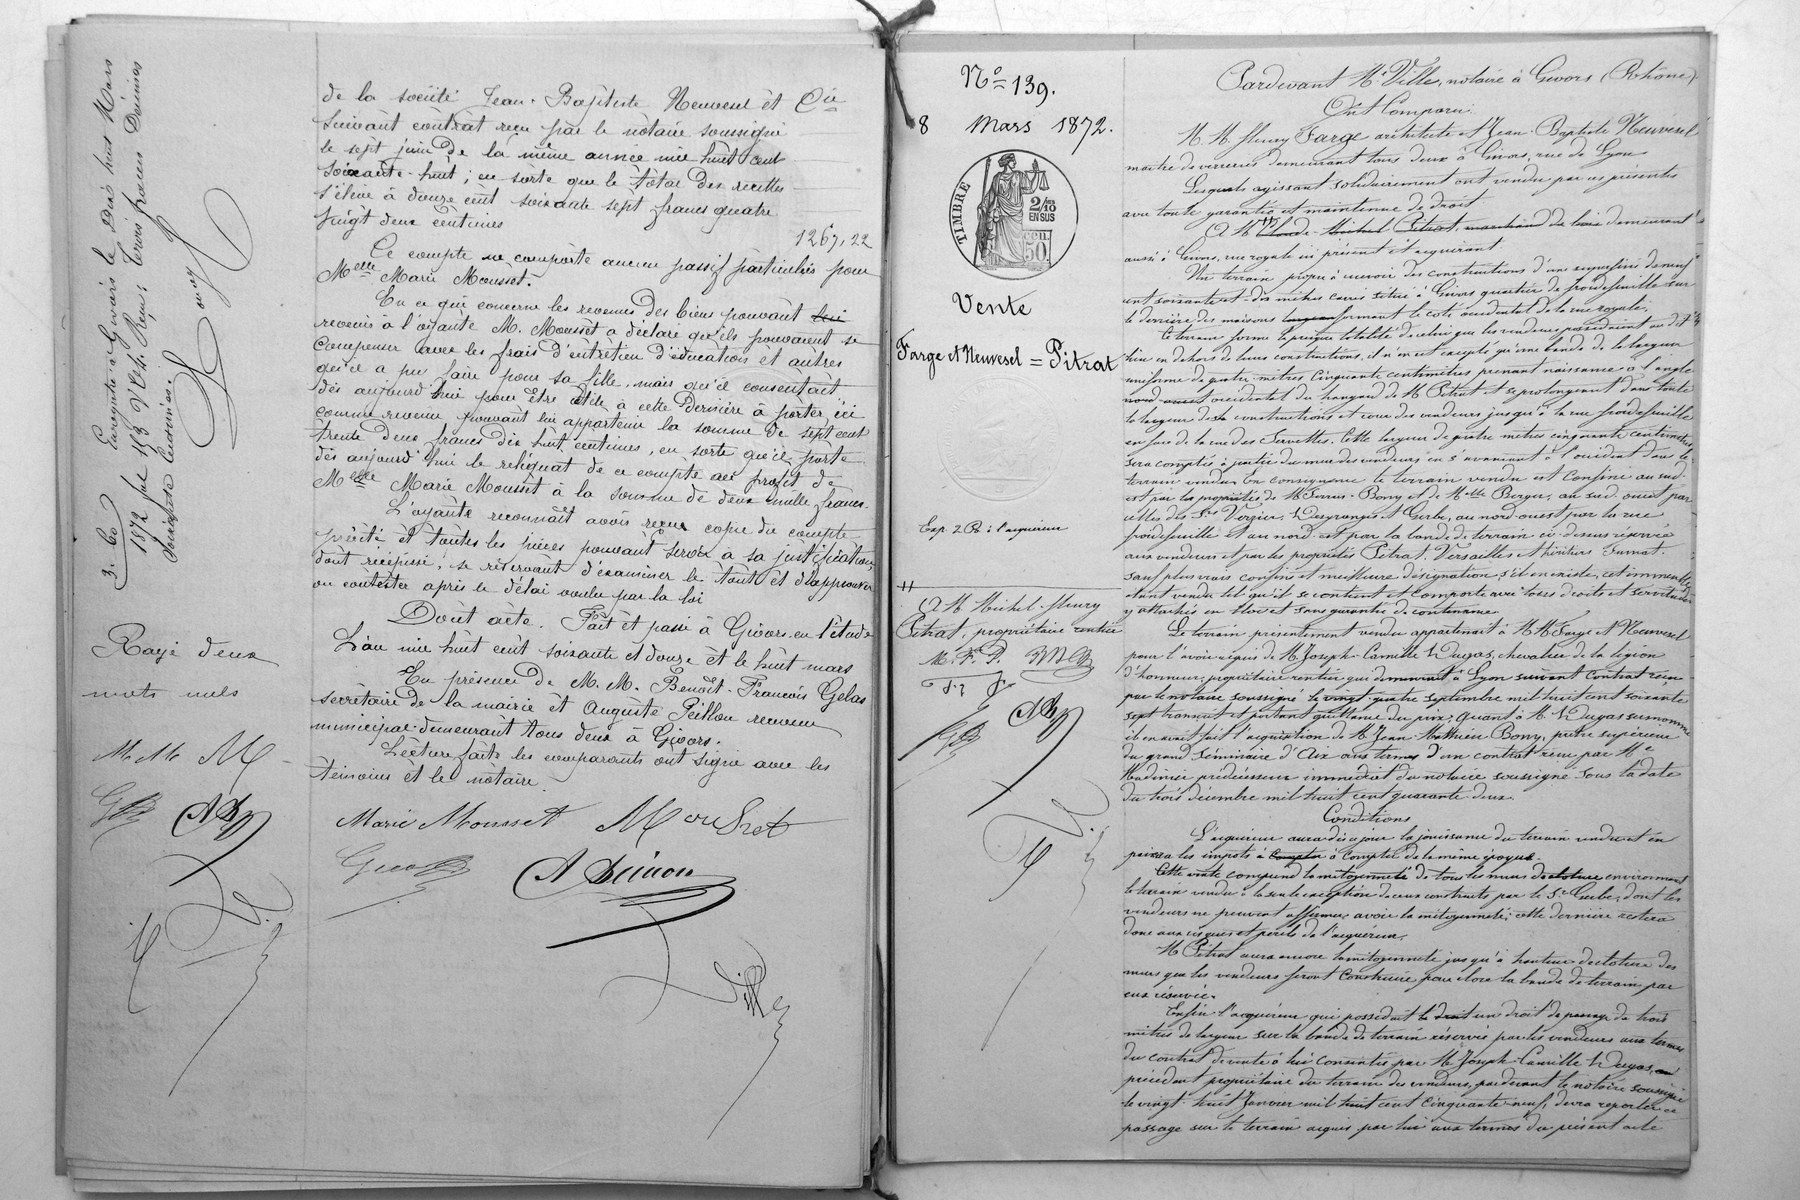 de la société Jean-Baptiste Neuvesel et Cie
suivant contrat reçu par le notaire soussigné
le sept juin de la même année mil huit cent
soixante-huit ; en sorte que le total des recettes
s'élève à douze cent soixante sept francs quatre
vingt deux centimes
1267,22
Ce compte ne comporte aucun passif particulier pour
Melle Marie Mousset.
En ce qui concerne les revenus des biens pouvant lui
revenir à l'oyante M. Mousset a déclaré qu'ils pouvaient se
compenser avec les frais d'entretien d'éducation et autres
qu'il a pu faire pour sa fille, mais qu'il consentait
dès aujourd'hui pour être utile à cette dernière à porter ici
comme revenu pouvant lui appartenir la somme de sept cent
trente deux francs dix huit centimes, en sorte qu'il porte
dès aujourd'hui le reliquat de ce compte au profit de
Melle Marie Mousset à la somme de deux mille francs.
L'oyante reconnaît avoir reçu copie du compte
précité et toutes les pièces pouvant servir à sa justification,
dont récépissé, se réservant d'examiner le tout et d'approuver
ou contester après le délai voulu par la loi
Dont acte. Fait et passé à Givors en l'étude
L'an mil huit cent soixante et douze et le huit mars
En présence de M. M. Benoît-François Gelas
secrétaire de la mairie et Auguste Peillon receveur
municipal demeurant tous deux à Givors.
Lecture faite les comparants ont signé avec les
témoins et le notaire.
Marie Mousset Mousset
Ville
Enregistré à Givors le dix huit Mars
1872 fol 153 Vo C. Reçu trois francs Décimes
soixante centimes.
3.60
Rayé deux
mots nuls
No 139.
8 Mars 1872.
TIMBRE
2/10
EN SUS
cen.
50
Vente
Farge et Neuvesel = Pitrat
Exp. 2 R. : l'acquéreur
A M. Michel Fleury
Pitrat, propriétaire rentier
M. F. P.
Pardevant Me Ville, notaire à Givors (Rhône).
Ont Comparu :
M. M. Fleury Farge architecte et Jean-Baptiste Neuvesel
maître de verreries demeurant tous deux à Givors, rue de Lyon
Lesquels agissant solidairement ont vendu par ces présentes
avec toute garantie et maintenue de droit
A M. Claude Michel Pitrat, marchand de bois demeurant
aussi à Givors, rue royale ici présent et acquérant
Un terrain propre à recevoir des constructions d'une superficie de neuf
cent soixante et dix mètres carrés situé à Givors quartier de froidefeuille sur
le derrière des maisons formant le côté occidental de la rue royale.
Ce terrain forme la presque totalité de celui que les vendeurs possédaient au dit
lieu en dehors de leurs constructions, il n'en est excepté qu'une bande de la largeur
uniforme de quatre mètres cinquante centimètres prenant naissance à l'angle
nord occidental du hangard de M. Pitrat et se prolongeant dans toute
la largeur des constructions et cour des vendeurs jusqu'à la rue froidefeuille
en face de la rue des Servettes. Cette largeur de quatre mètres cinquante centimètres
sera comptée à partir du mur des vendeurs en s'avançant à l'occident dans le
terrain vendu. En conséquence le terrain vendu est confiné au sud
est par les propriétés de M. Ferrus-Bony et de Melle Berger, au sud ouest par
celles des Srs Verzier, Desgranges et Gerbe, au nord ouest par la rue
froidefeuille et au nord est par la bande de terrain ci-dessus réservée
aux vendeurs et par les propriétés Pitrat, Versailles et héritiers Fumat.
sauf plus vrais confins et meilleure désignation s'il en existe, cet immeuble
étant vendu tel qu'il se contient et comporte avec tous droits et servitudes
y attachés en bloc et sans garantie de contenance.
Le terrain présentement vendu appartenait à M. M. Farge et Neuvesel
pour l'avoir acquis de M. Joseph-Camille Dugas, chevalier de la légion
d'honneur, propriétaire rentier qui demeurait à Lyon suivant contrat reçu
par le notaire soussigné le vingt-quatre septembre mil huit cent soixante
sept transcrit et portant quittance du prix ; quant à M. Dugas susnommé
il en avait fait l'acquisition de M. Jean-Matthieu Bony, prêtre supérieur
du grand séminaire d'Aix aux termes d'un contrat reçu par Me
prédécesseur immédiat du notaire soussigné sous la date
du trois décembre mil huit cent quarante-deux.
Conditions
L'acquéreur aura dès ce jour la jouissance du terrain vendu et en
paiera les impôts à compter à compter de la même époque.
Cette vente comprend la mitoyenneté de tous les murs de clôture environnant
le terrain vendu à la seule exception de ceux construits par le Sr Gerbe, dont les
vendeurs ne peuvent affirmer avoir la mitoyenneté ; cette dernière restera
donc aux risques et périls de l'acquéreur.
M. Pitrat aura encore la mitoyenneté jusqu'à hauteur de clôture des
murs que les vendeurs feront construire pour clore la bande de terrain par
eux réservée.
Enfin l'acquéreur qui possédait le droit un droit de passage de trois
mètres de largeur sur la bande de terrain réservée par les vendeurs aux termes
du contrat de vente à lui consentie par M. Joseph-Camille Dugas,
précédent propriétaire du terrain des vendeurs, pardevant le notaire soussigné
le vingt-huit Janvier mil huit cent cinquante-neuf, devra reporter ce
passage sur le terrain acquis par lui aux termes du présent acte